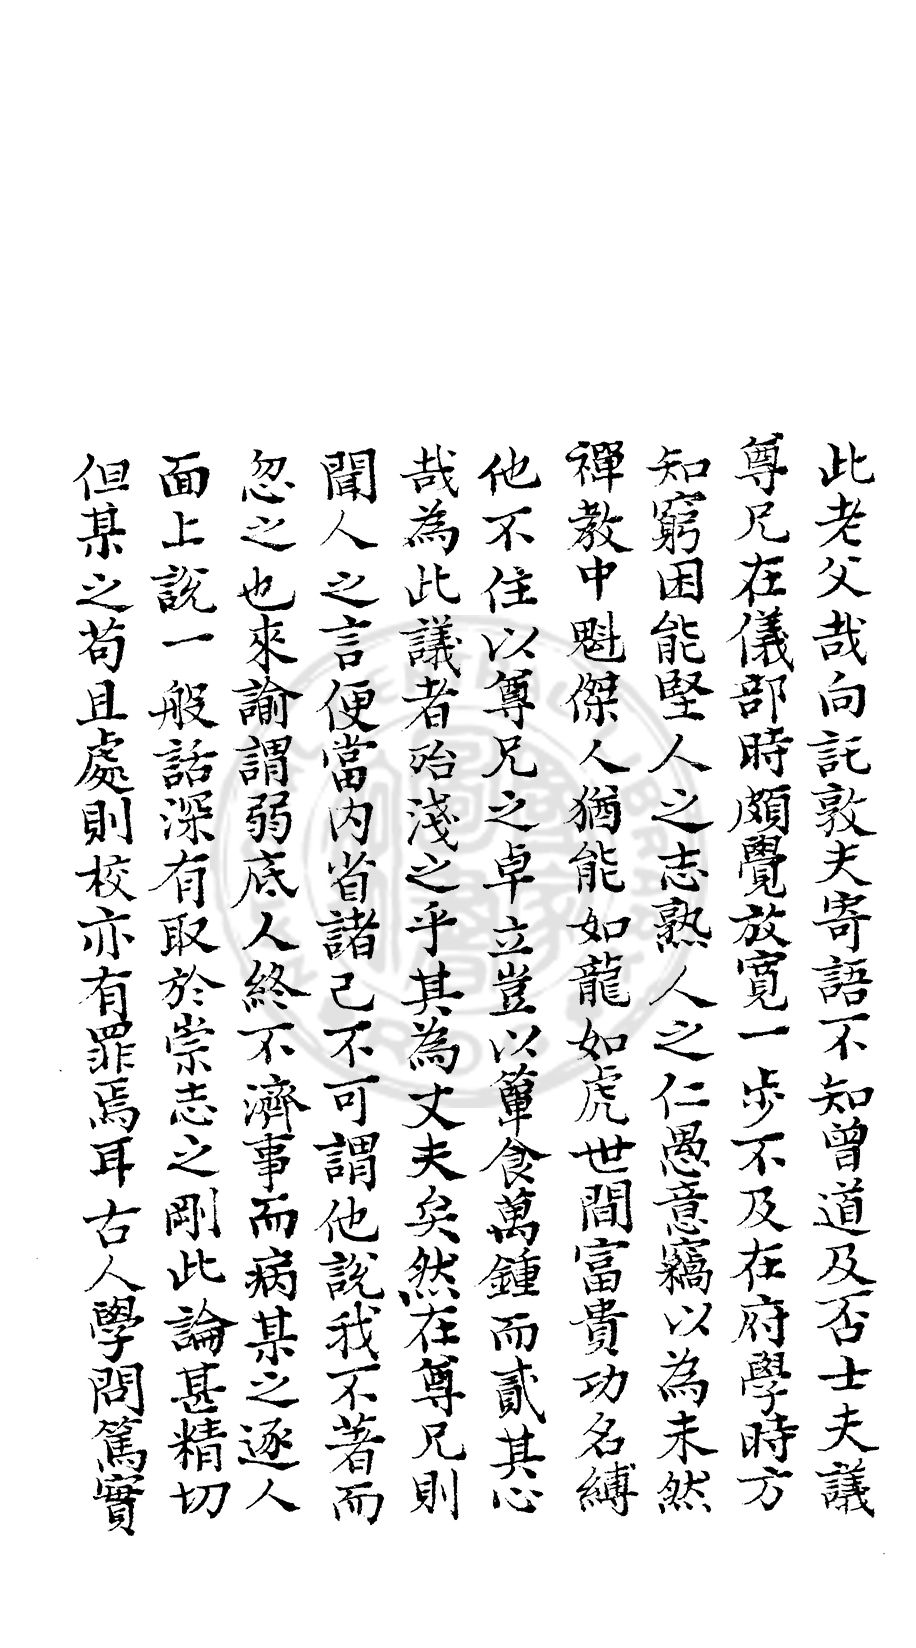 此老父哉向託敦夫寄語不知曾道及否士夫議
尊兄在儀部時頗覺放寬一步不及在府學時方
知窮困能堅人之志熟人之仁愚意竊以為未然
禪教中魁傑人猶能如龍如虎世間富貴功名縛
他不住以尊兄之卓立豈以簞食萬鍾而貳其心
哉為此議者殆淺之乎其為丈夫矣然在尊兄則
聞人之言便當内省諸己不可謂他說我不著而
忽之也來諭謂弱底人終不濟事而病某之逐人
面上說一般話深有取於崇志之剛此論甚精切
但某之苟且處則校亦有罪焉耳古人學問篤實